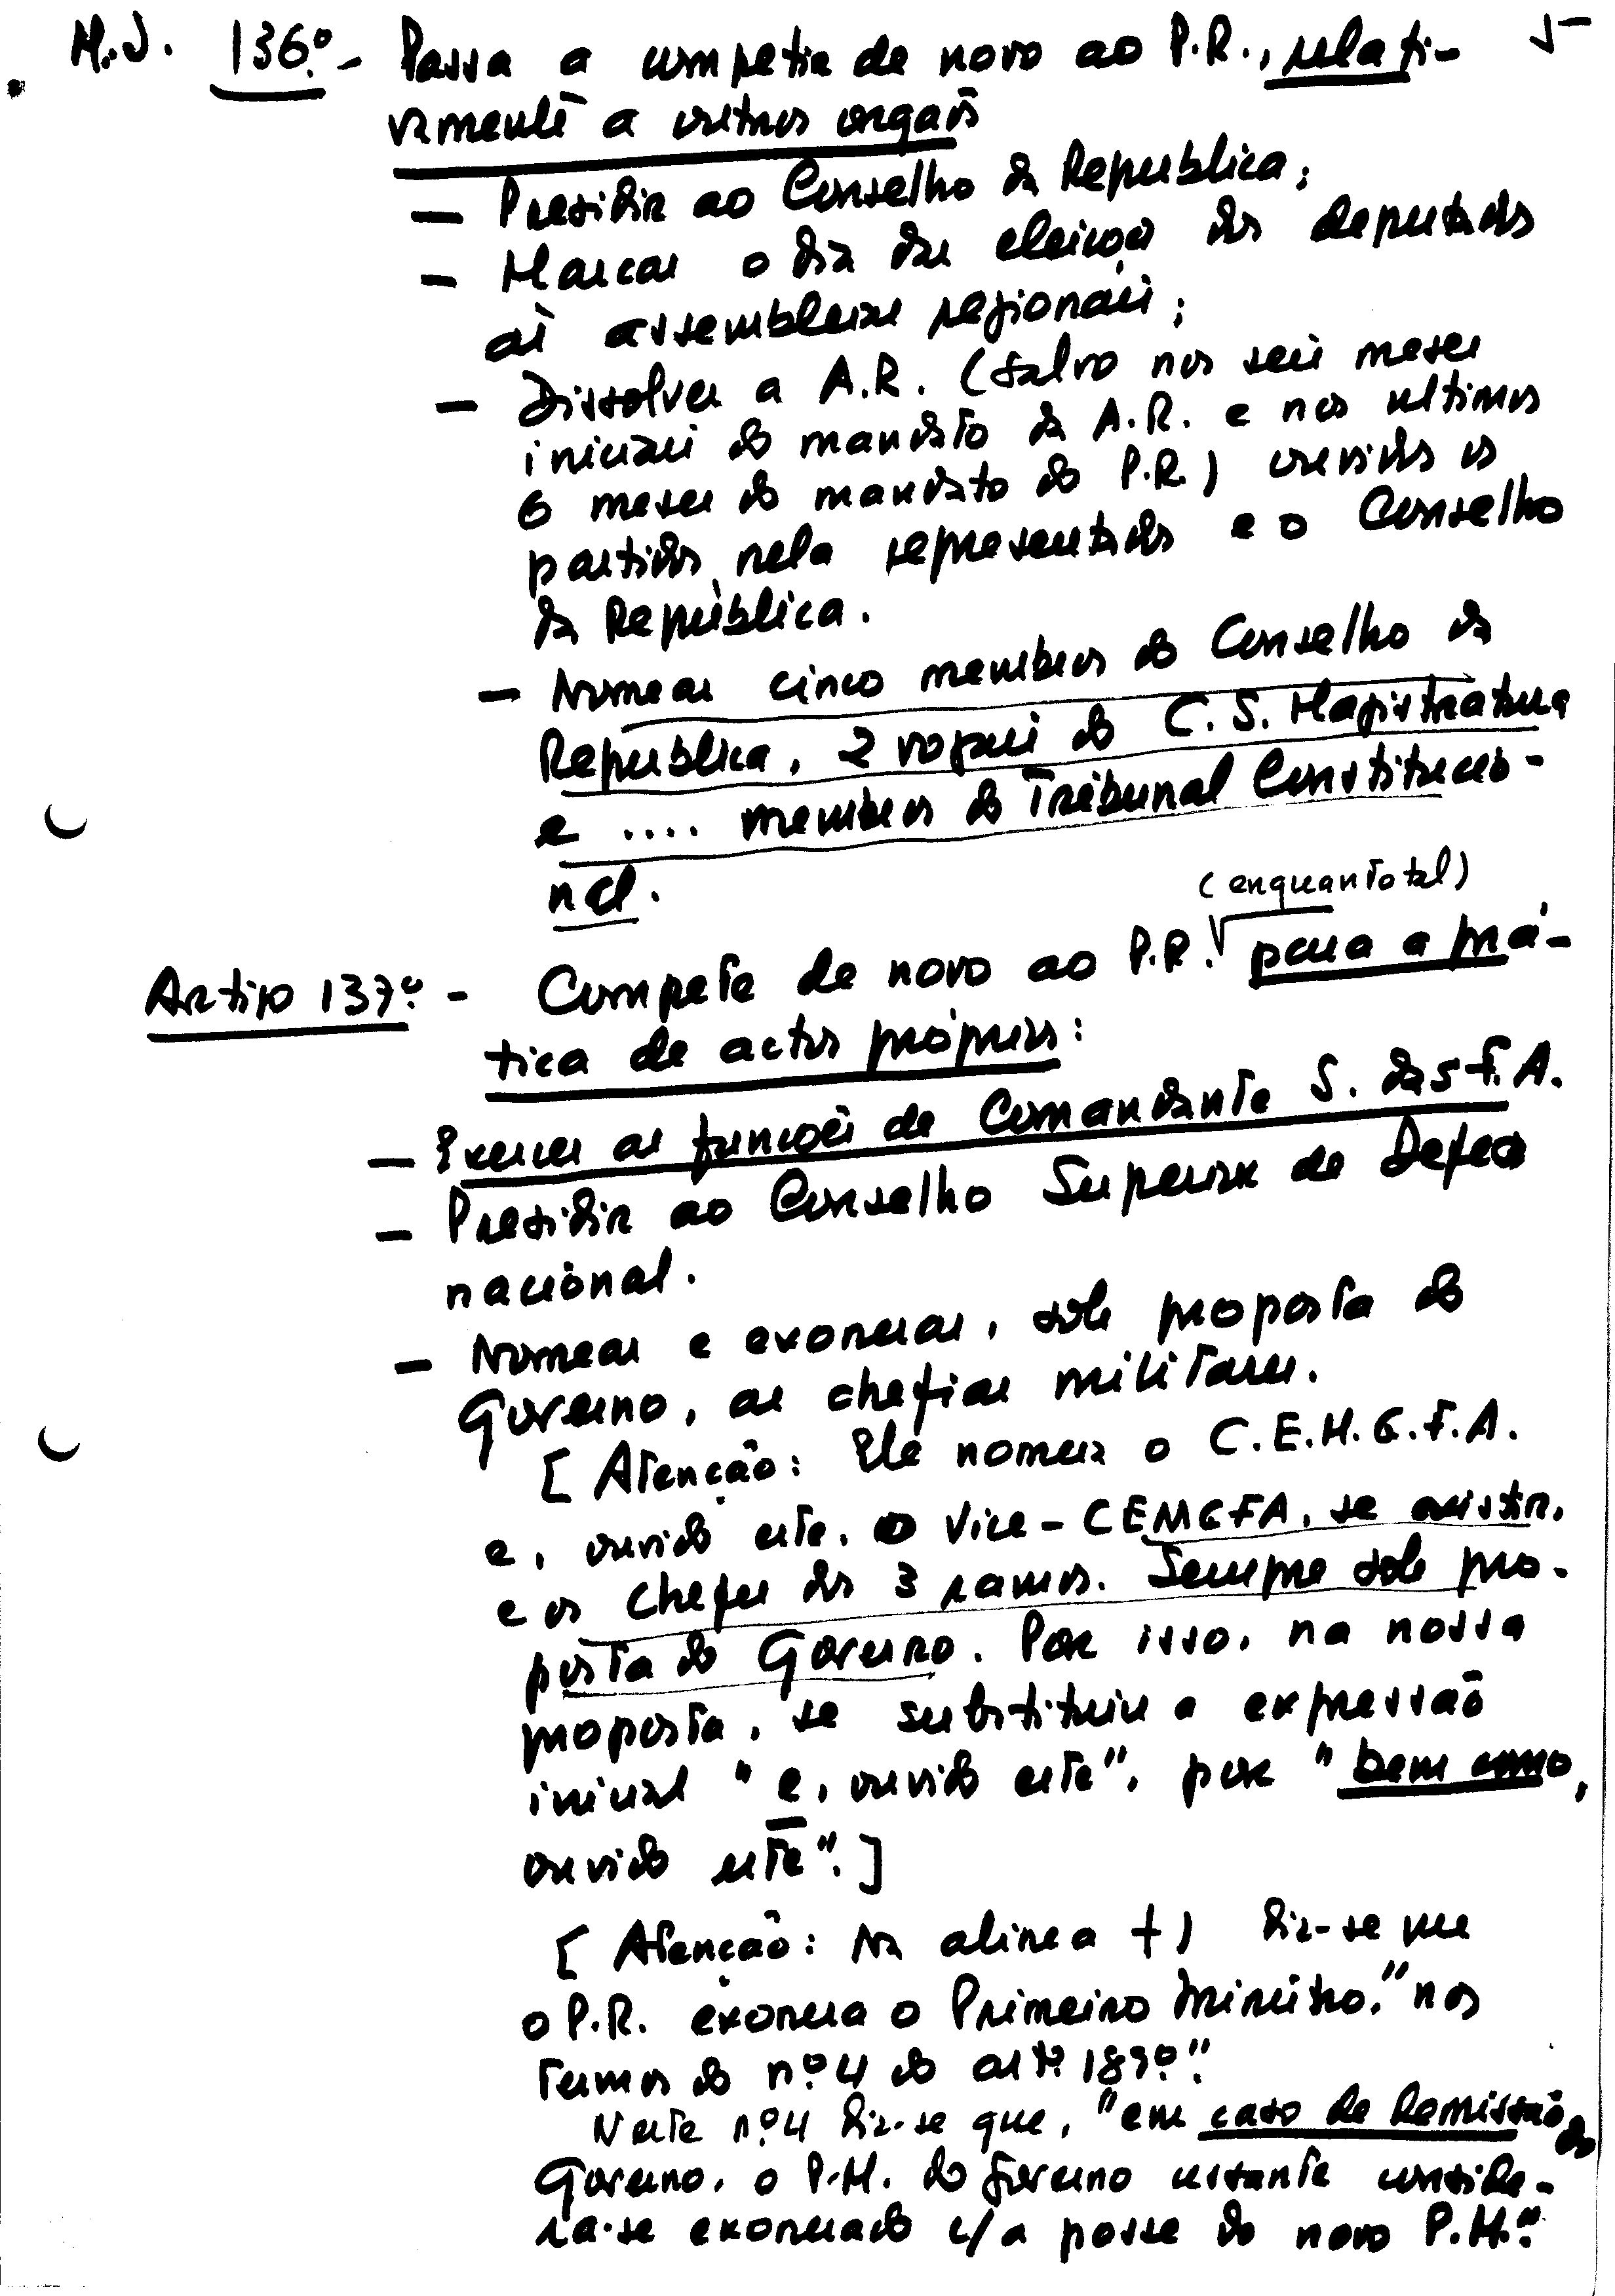 M.J. 136º - Passa a competir de novo ao P.R., relati- 5
vamente a outros orgãos
— Presidir ao Conselho da República;
— Marcar o dia das eleições dos deputados
às assembleias regionais;
— Dissolver a A.R. (salvo nos seis meses
iniciais do mandato da A.R. e nos ultimos
6 meses do mandato do P.R.) ouvidos os
partidos nela representados e o Conselho
da República.
— Nomear cinco membros do Conselho da
Republica, 2 vogais do C.S. Magistratura
e .... membros do Tribunal Constitucio-
nal.
(enquanto tal)
Artigo 137º - Compete de novo ao P.R. para a prá-
tica de actos próprios:
— Exercer as funções de Comandante S. das F.A.
— Presidir ao Conselho Superior de Defesa
nacional.
— Nomear e exonerar, sob proposta do
Governo, as chefias militares.
[Atenção: Ele nomeia o C.E.M.G.F.A.
e, ouvido este, o Vice-CEMGFA, se existir,
e os chefes dos 3 ramos. Sempre sob pro-
posta do Governo. Por isso, na nossa
proposta, se substituiu a expressão
inicial "e, ouvido este", por "bem como,
ouvido este".]
[Atenção: Na alinea f) diz-se que
o P.R. exonera o Primeiro Ministro, "nos
termos do nº 4 do artº 189º".
Neste nº 4 diz-se que, "em caso de demissão do
Governo, o P.M. do governo cessante conside-
ra-se exonerado c/a posse do novo P.M."